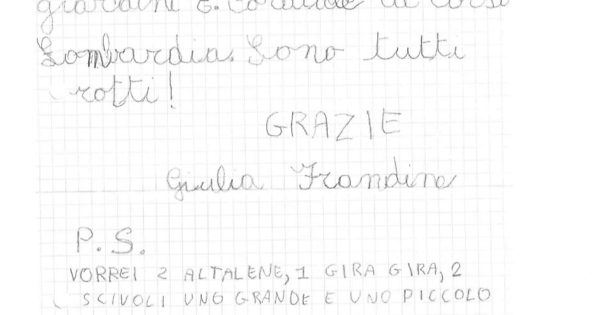 giardini E. Corduae di corso
Lombardia. Sono tutti
rotti!
GRAZIE
Giulia Frandino
P.S.
VORREI 2 ALTALENE, 1 GIRA GIRA, 2
SCIVOLI UNO GRANDE E UNO PICCOLO